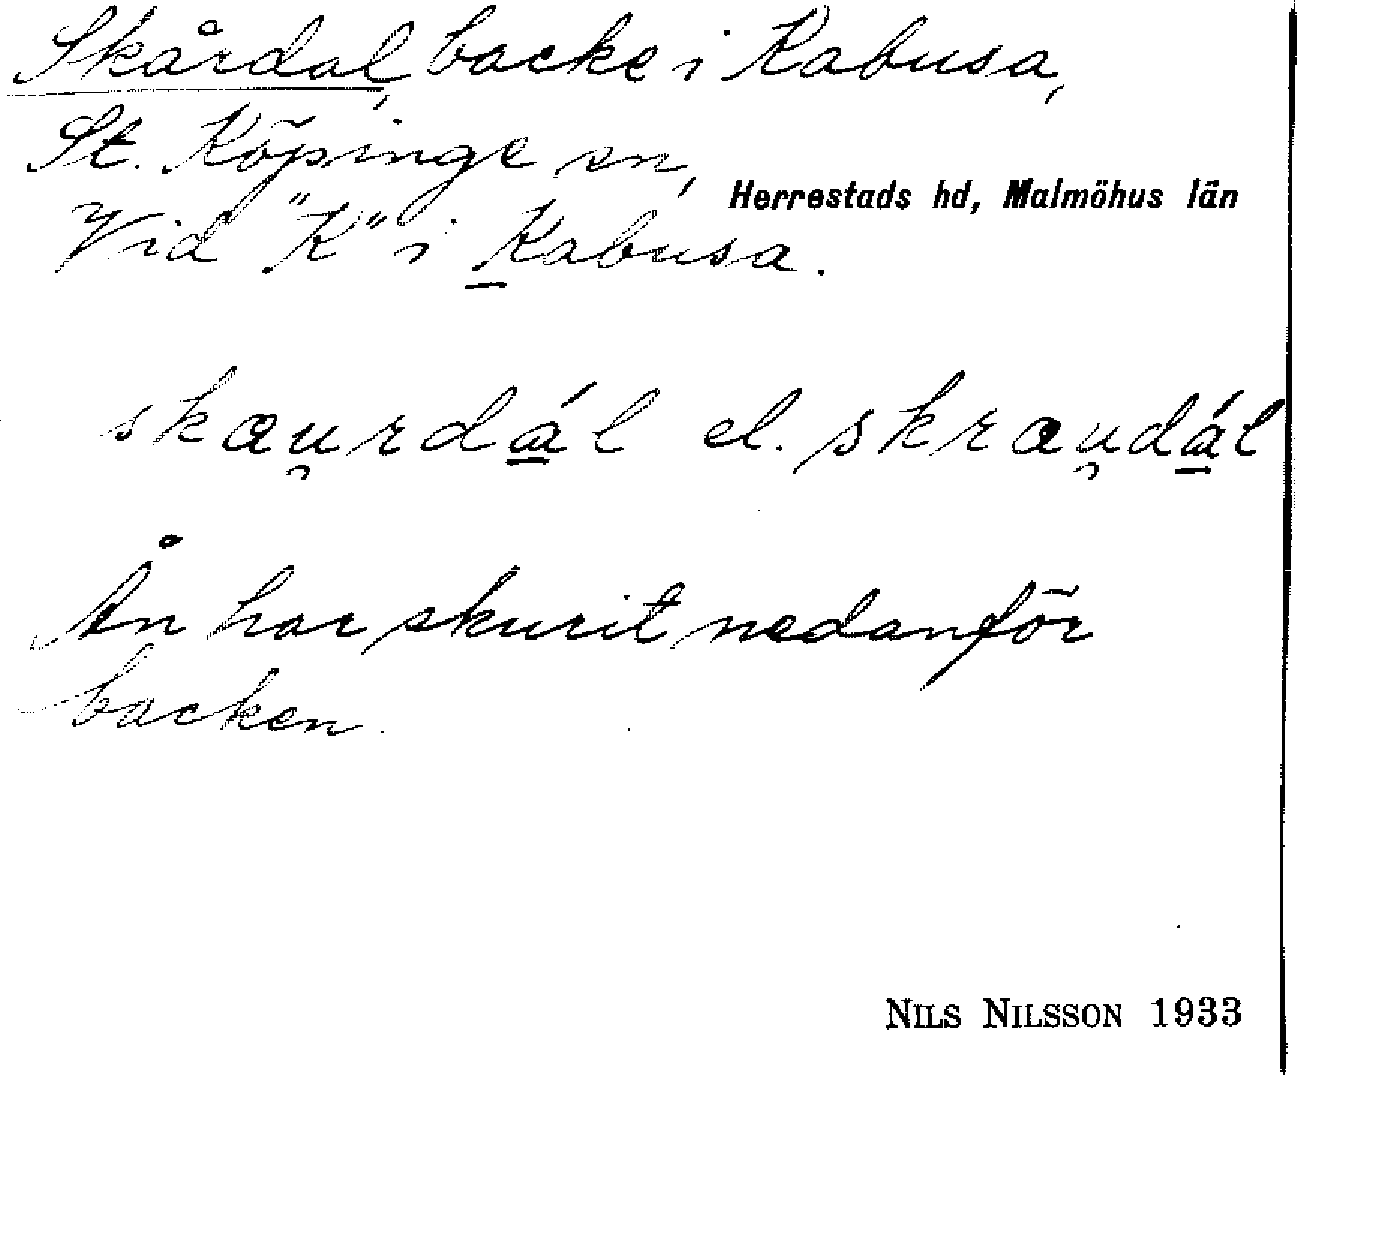 Skårdal, backe i Kabusa,
St. Köpinge sn,
Herrestads hd, Malmöhus län
Vid "K" i Kabusa.
skæu̯rdál el. skræu̯dál
Ån har skurit nedanför
backen.
NILS NILSSON 1933